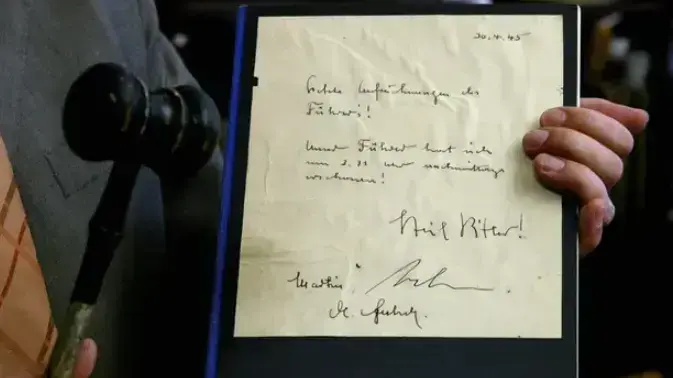 30.4.45
Letzte Aufzeichnungen des
Führers!
Unser Führer hat sich
um nachmittags
erschossen!
Heil Hitler!
Martin